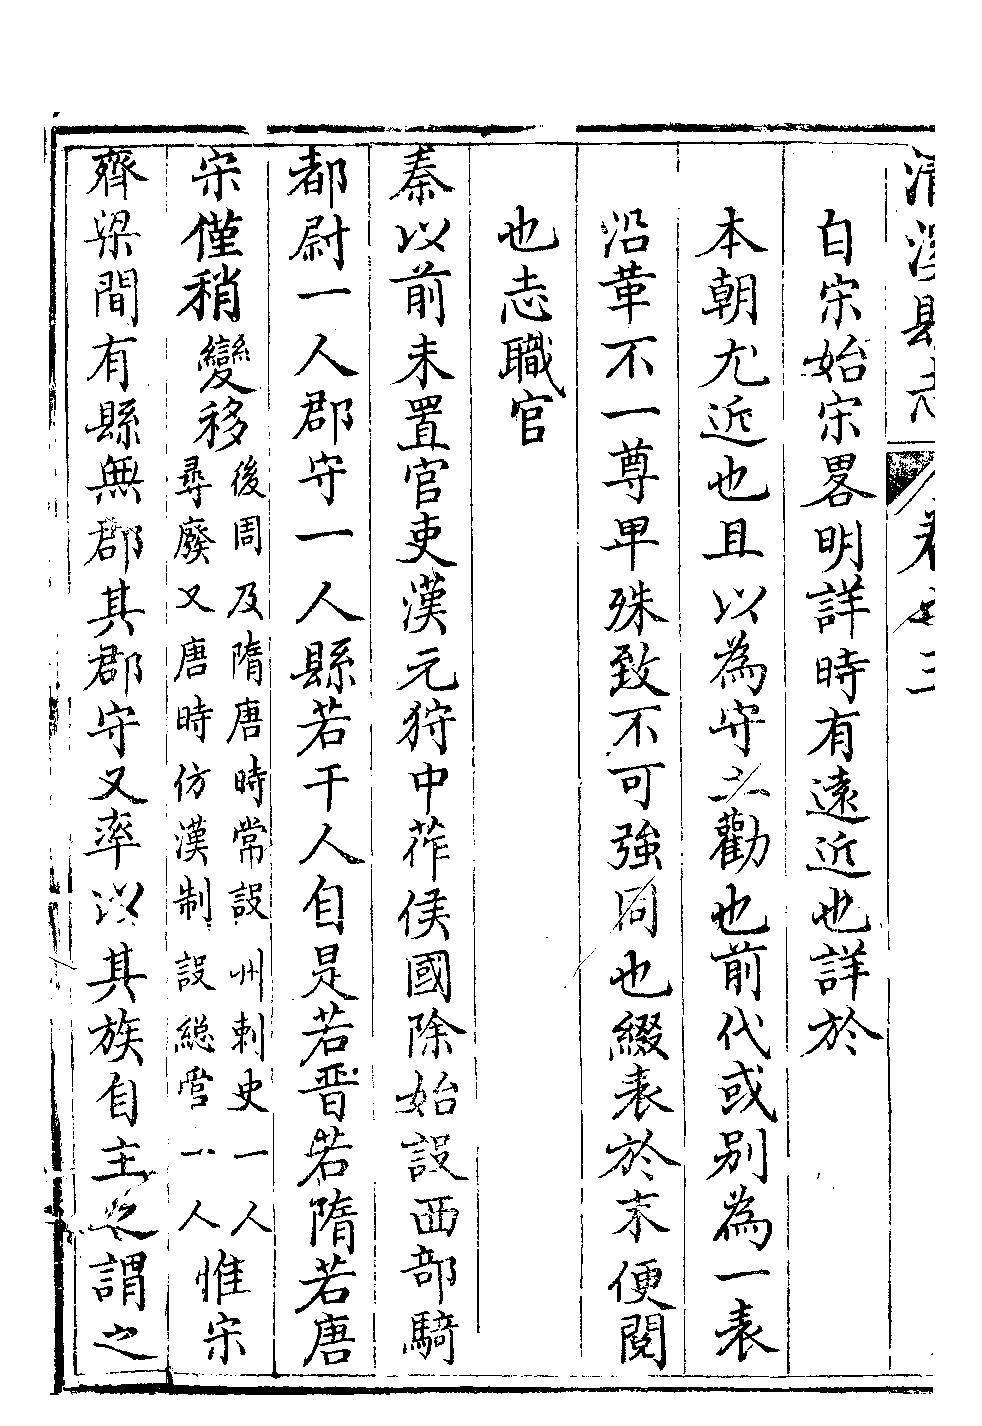 清溪縣志 卷之三
自宋始宋畧明詳時有遠近也詳於
本朝尤近也且以為守土勸也前代或別為一表
沿革不一尊卑殊致不可強同也綴表於末便閱
也志職官
秦以前未置官吏漢元狩中莋侯國除始設西部騎
都尉一人郡守一人縣若干人自是若晉若隋若唐
宋僅稍變移後周及隋唐時常設州刺史一人尋廢又唐時仿漢制設総管一人惟宋
齊梁間有縣無郡其郡守又率以其族自主之謂之